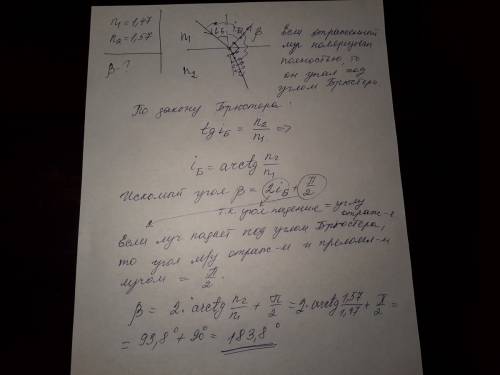 n₁ = 1,47
n₂ = 1,57
β - ?
n₁
n₂
iБ
iБ
β
Если отраженный
луч поляризован
полностью, то
он упал под
углом Брюстера.
По закону Брюстера:
tg iБ = n₂/n₁ =>
iБ = arctg n₂/n₁
Искомый угол β = 2iБ + π/2
т.к. угол падения = углу
отраж-я
Если луч падает под углом Брюстера,
то угол м/у отраж-м и преломл-м
лучом = π/2.
β = 2·arctg n₂/n₁ + π/2 = 2·arctg 1,57/1,47 + π/2 =
= 93,8° + 90° = 183,8°